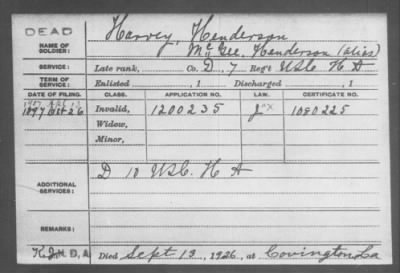 DEAD
Harvey, Henderson
NAME OF SOLDIER:
McGee, Henderson (alias)
SERVICE: Late rank, Co. D, 7 Reg't U.S.C. H A
TERM OF SERVICE: Enlisted , 1 Discharged , 1
DATE OF FILING. CLASS. APPLICATION NO. LAW. CERTIFICATE NO.
1897 Oct 26 Invalid, 1200235 1080225
Widow,
Minor,
ADDITIONAL SERVICES: D 10 U.S.C. H A
REMARKS:
Died Sept 13, 1926, at Covington, La